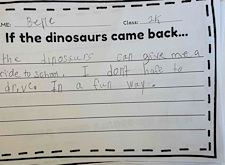 ME: Belle Class: 2K
If the dinosaurs came back...
the dinossurs can give me a
ride to school. I don't hafe to
drive. In a fun way.